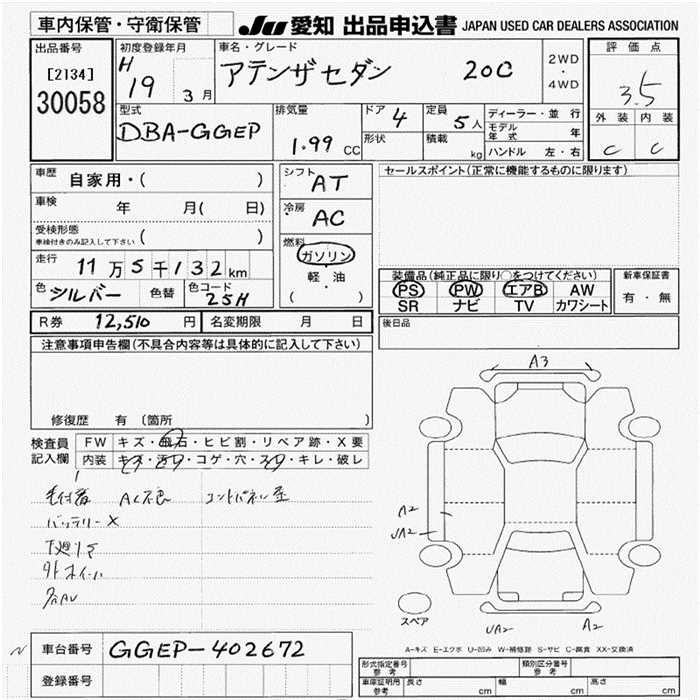 車内保管・守衛保管
JU 愛知 出品申込書 JAPAN USED CAR DEALERS ASSOCIATION
出品番号
[2134]
30058
初度登録年月
H 19 3 月
車名・グレード
アテンザセダン 20C
2WD
・
4WD
評価点
3.5
外装 内装
C C
型式
DBA-GGEP
排気量
1.99 CC
ドア 4
形状
定員 5人
積載 kg
ディーラー・並行
モデル年式 年
ハンドル 左・右
車歴 自家用・( )
車検 年 月( 日)
受検形態
車検付きのみ記入して下さい ( )
走行 11万5千132km
色 シルバー 色替 色コード 25H
シフト AT
冷房 AC
燃料
ガソリン
軽・油
・
( )
セールスポイント(正常に機能するものに限ります)
装備品(純正品に限り○をつけてください)
PS PW エアB AW
SR ナビ TV カワシート
新車保証書
有・無
後日品
R券 12,510 円 名変期限 月 日
注意事項申告欄(不具合内容等は具体的に記入して下さい)
修復歴 有 (箇所 )
検査員
記入欄
FW キズ・飛石・ヒビ割・リペア跡・X要
内装 キズ・汚レ・コゲ・穴・スレ・キレ・破レ
AC不良
バッテリーX
下廻リサ
外ホイール
A3
A2
UA2
UA2 A2
スペア
A-キズ E-エクボ U-凹み W-補修跡 S-サビ C-腐食 XX-交換済
車台番号 GGEP-402672
登録番号
形式指定番号
参考
類別区分番号
参考
車庫証明用
参考
長さ cm 幅 cm 高さ cm